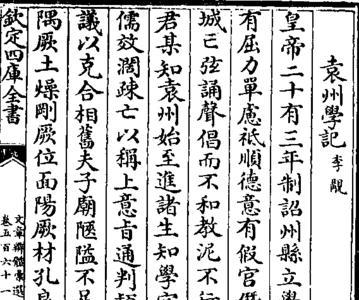 袁州學記 李覯
皇帝二十有三年制詔州縣立學
有屈力單慮祗順德意有假官
城亡弦誦聲倡而不和教泥不行
君某知袁州始至進諸生知學宮
儒效濶疎亡以稱上意㫖通判
議以克合相舊夫子廟陿隘不足
隅厥土燥剛厥位面陽厥材孔良
欽定四庫全書
文章辨體彚選
卷五百六十一